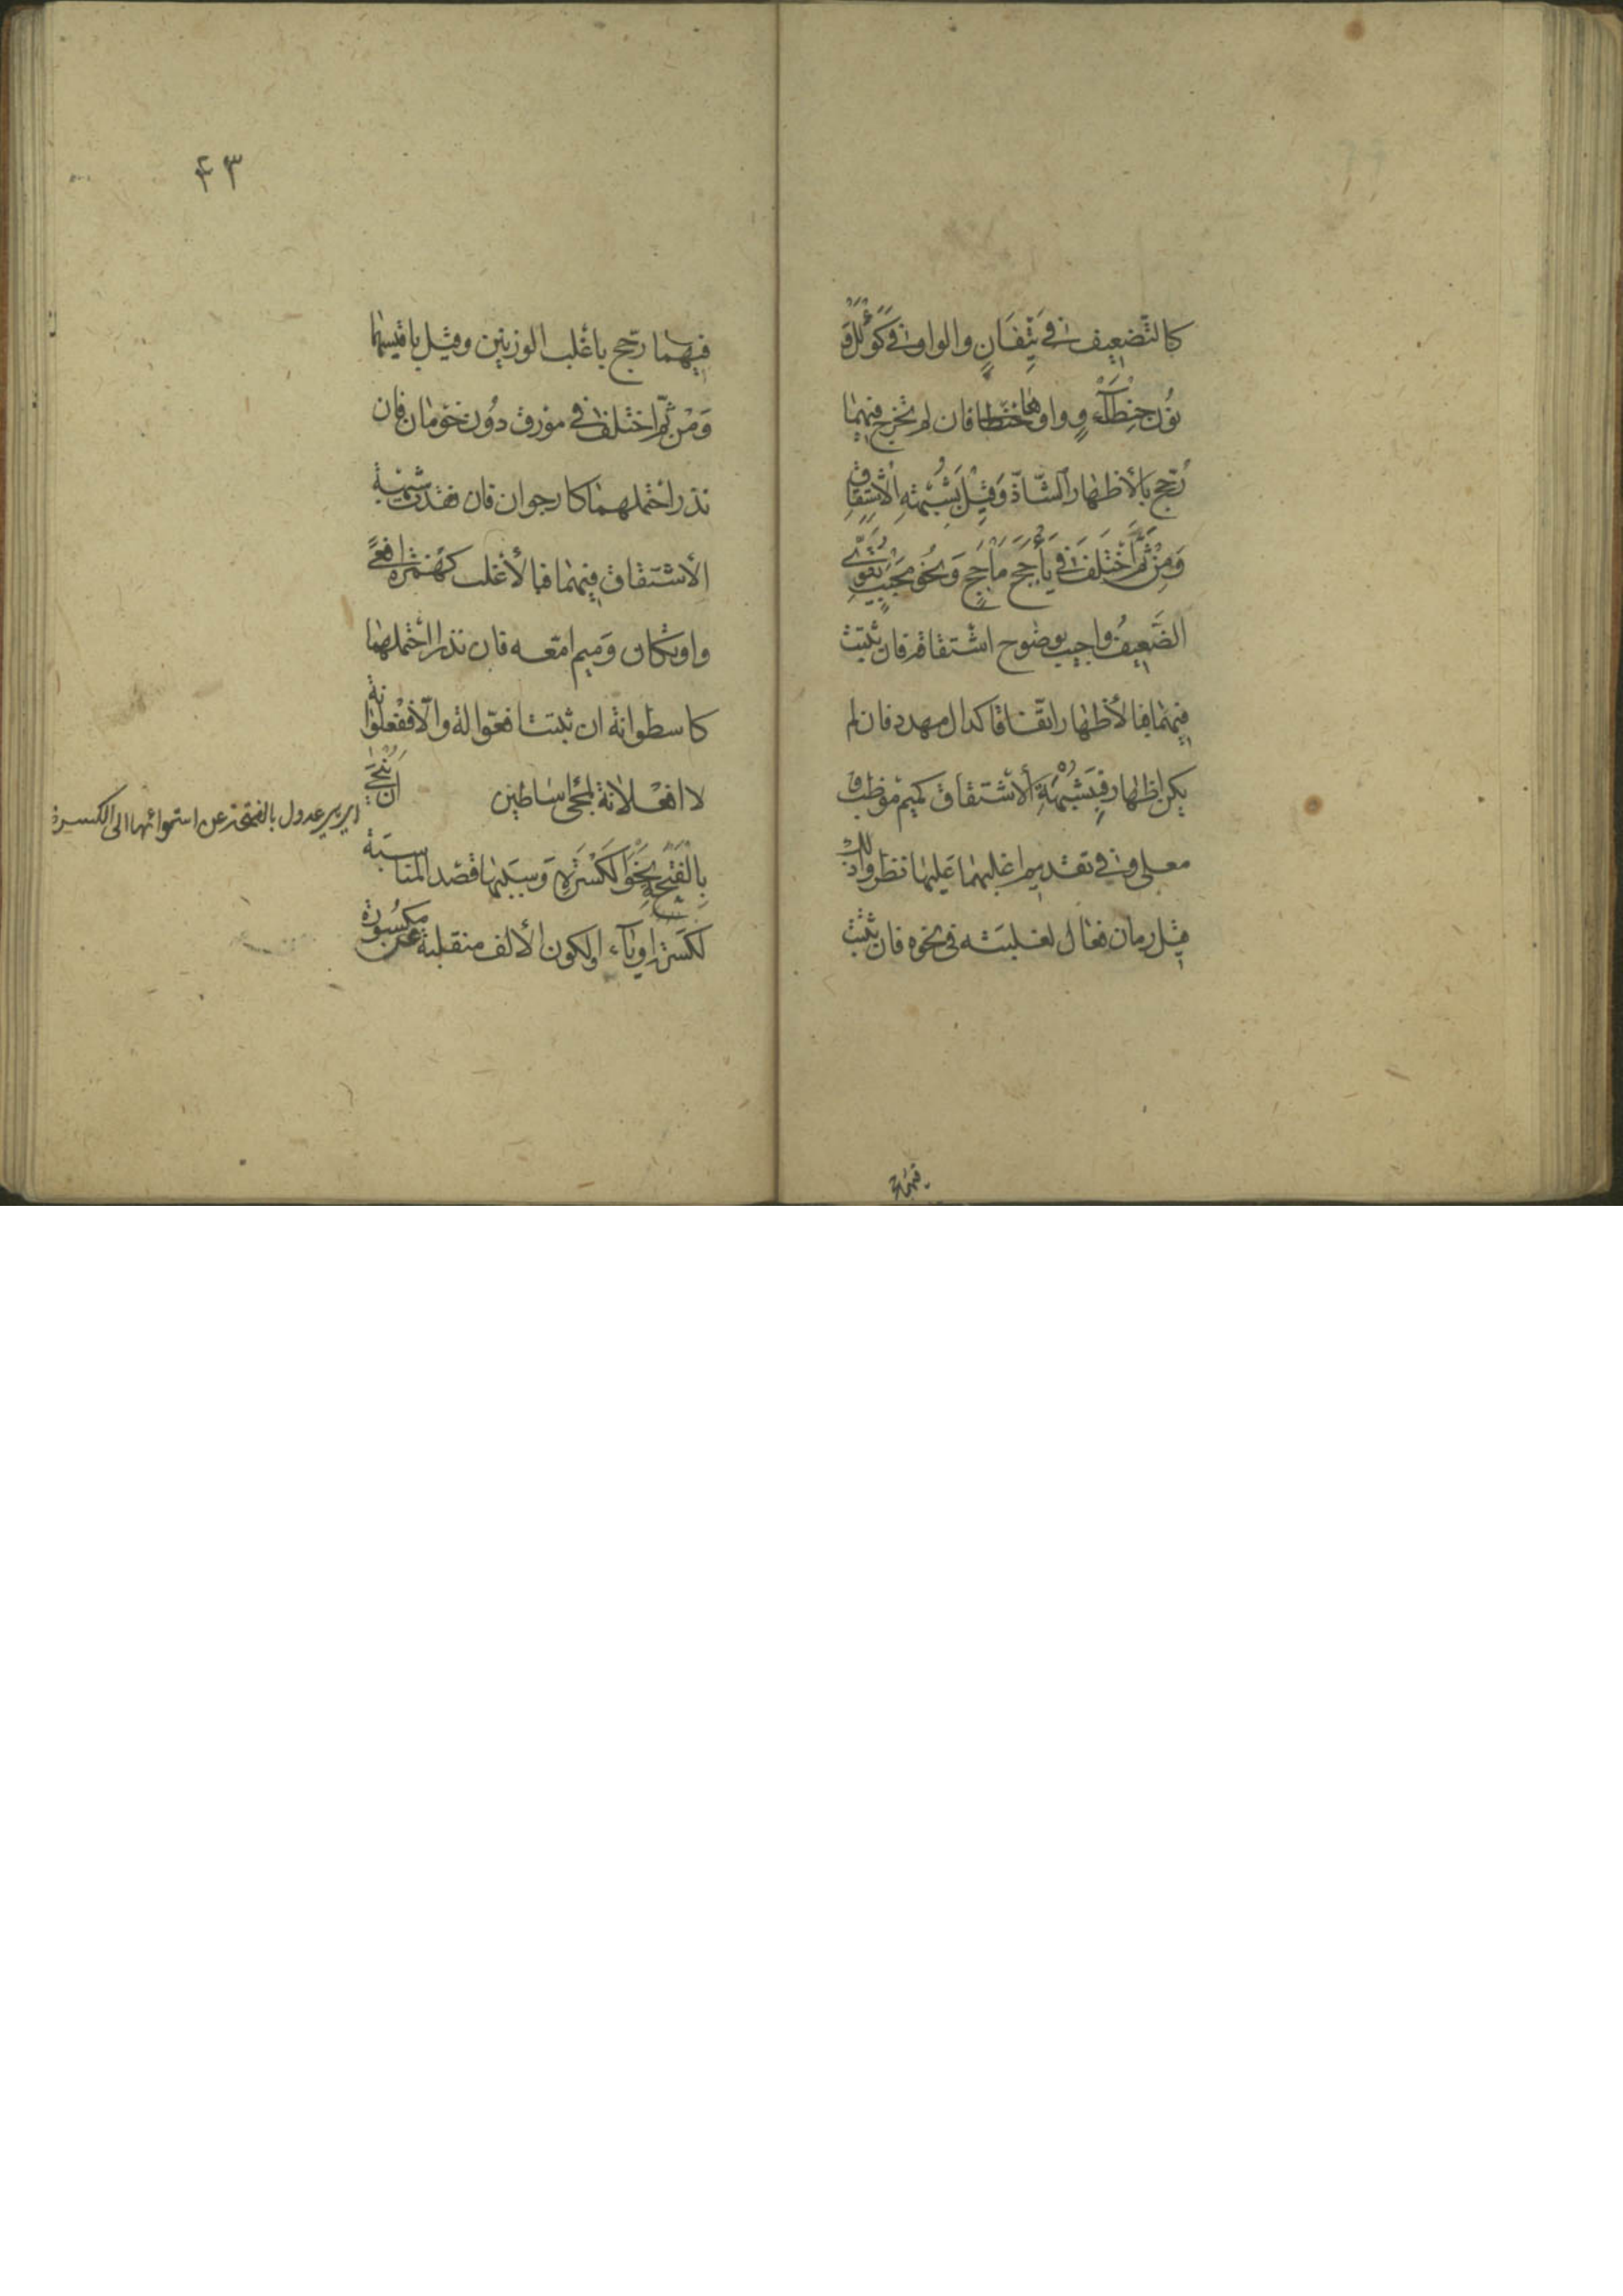 كالتضعيف في تئفان والواو في كوألل و
نون حنطأو وواوها فان لم تخرج فيهما
رجح بالأظهار الشاذ وقيل بشبهة الاشتقاق
وَمِنْ ثَمَّ اخْتُلِفَ في يأجج مأجج ونحو محبب يقوي
الضعيف واجيب بوضوح اشتقاقه فان ثبتت
فيهما فبالأظهار اتفاقا كدال مهدد فان لم
يكن اظهار فبشبهة الأشتقاق كميم موظب و
معلى وفي تقديم اغلبهما عليها نظر ولذلك
قيل رمان فعال لغلبته في نحوه فان ثبتت
فيهما
٤٣
فيهما رجح بأغلب الوزنين وقيل باقيسهما
وَمنْ ثمّ اختلف في مورق دون حومان فان
ندر احتملهما كارجوان فان فقدت شبهة
الأشتقاق فيهما فبالأغلب كهمزة افعى
واوتكان وميم امّعه فان ندرا احتملهما
كاسطوانة ان ثبتت افعوالة والّا ففعلوانة
لا افعلانة لمجئ اساطين ان ينحى
بالفتحة نحو الكسرة وسببها قصد المناسبة
لكسرة او ياء او لكون الألف منقلبة عن مكسورة
عدول بالفتحة عن استوائها الى الكسرة